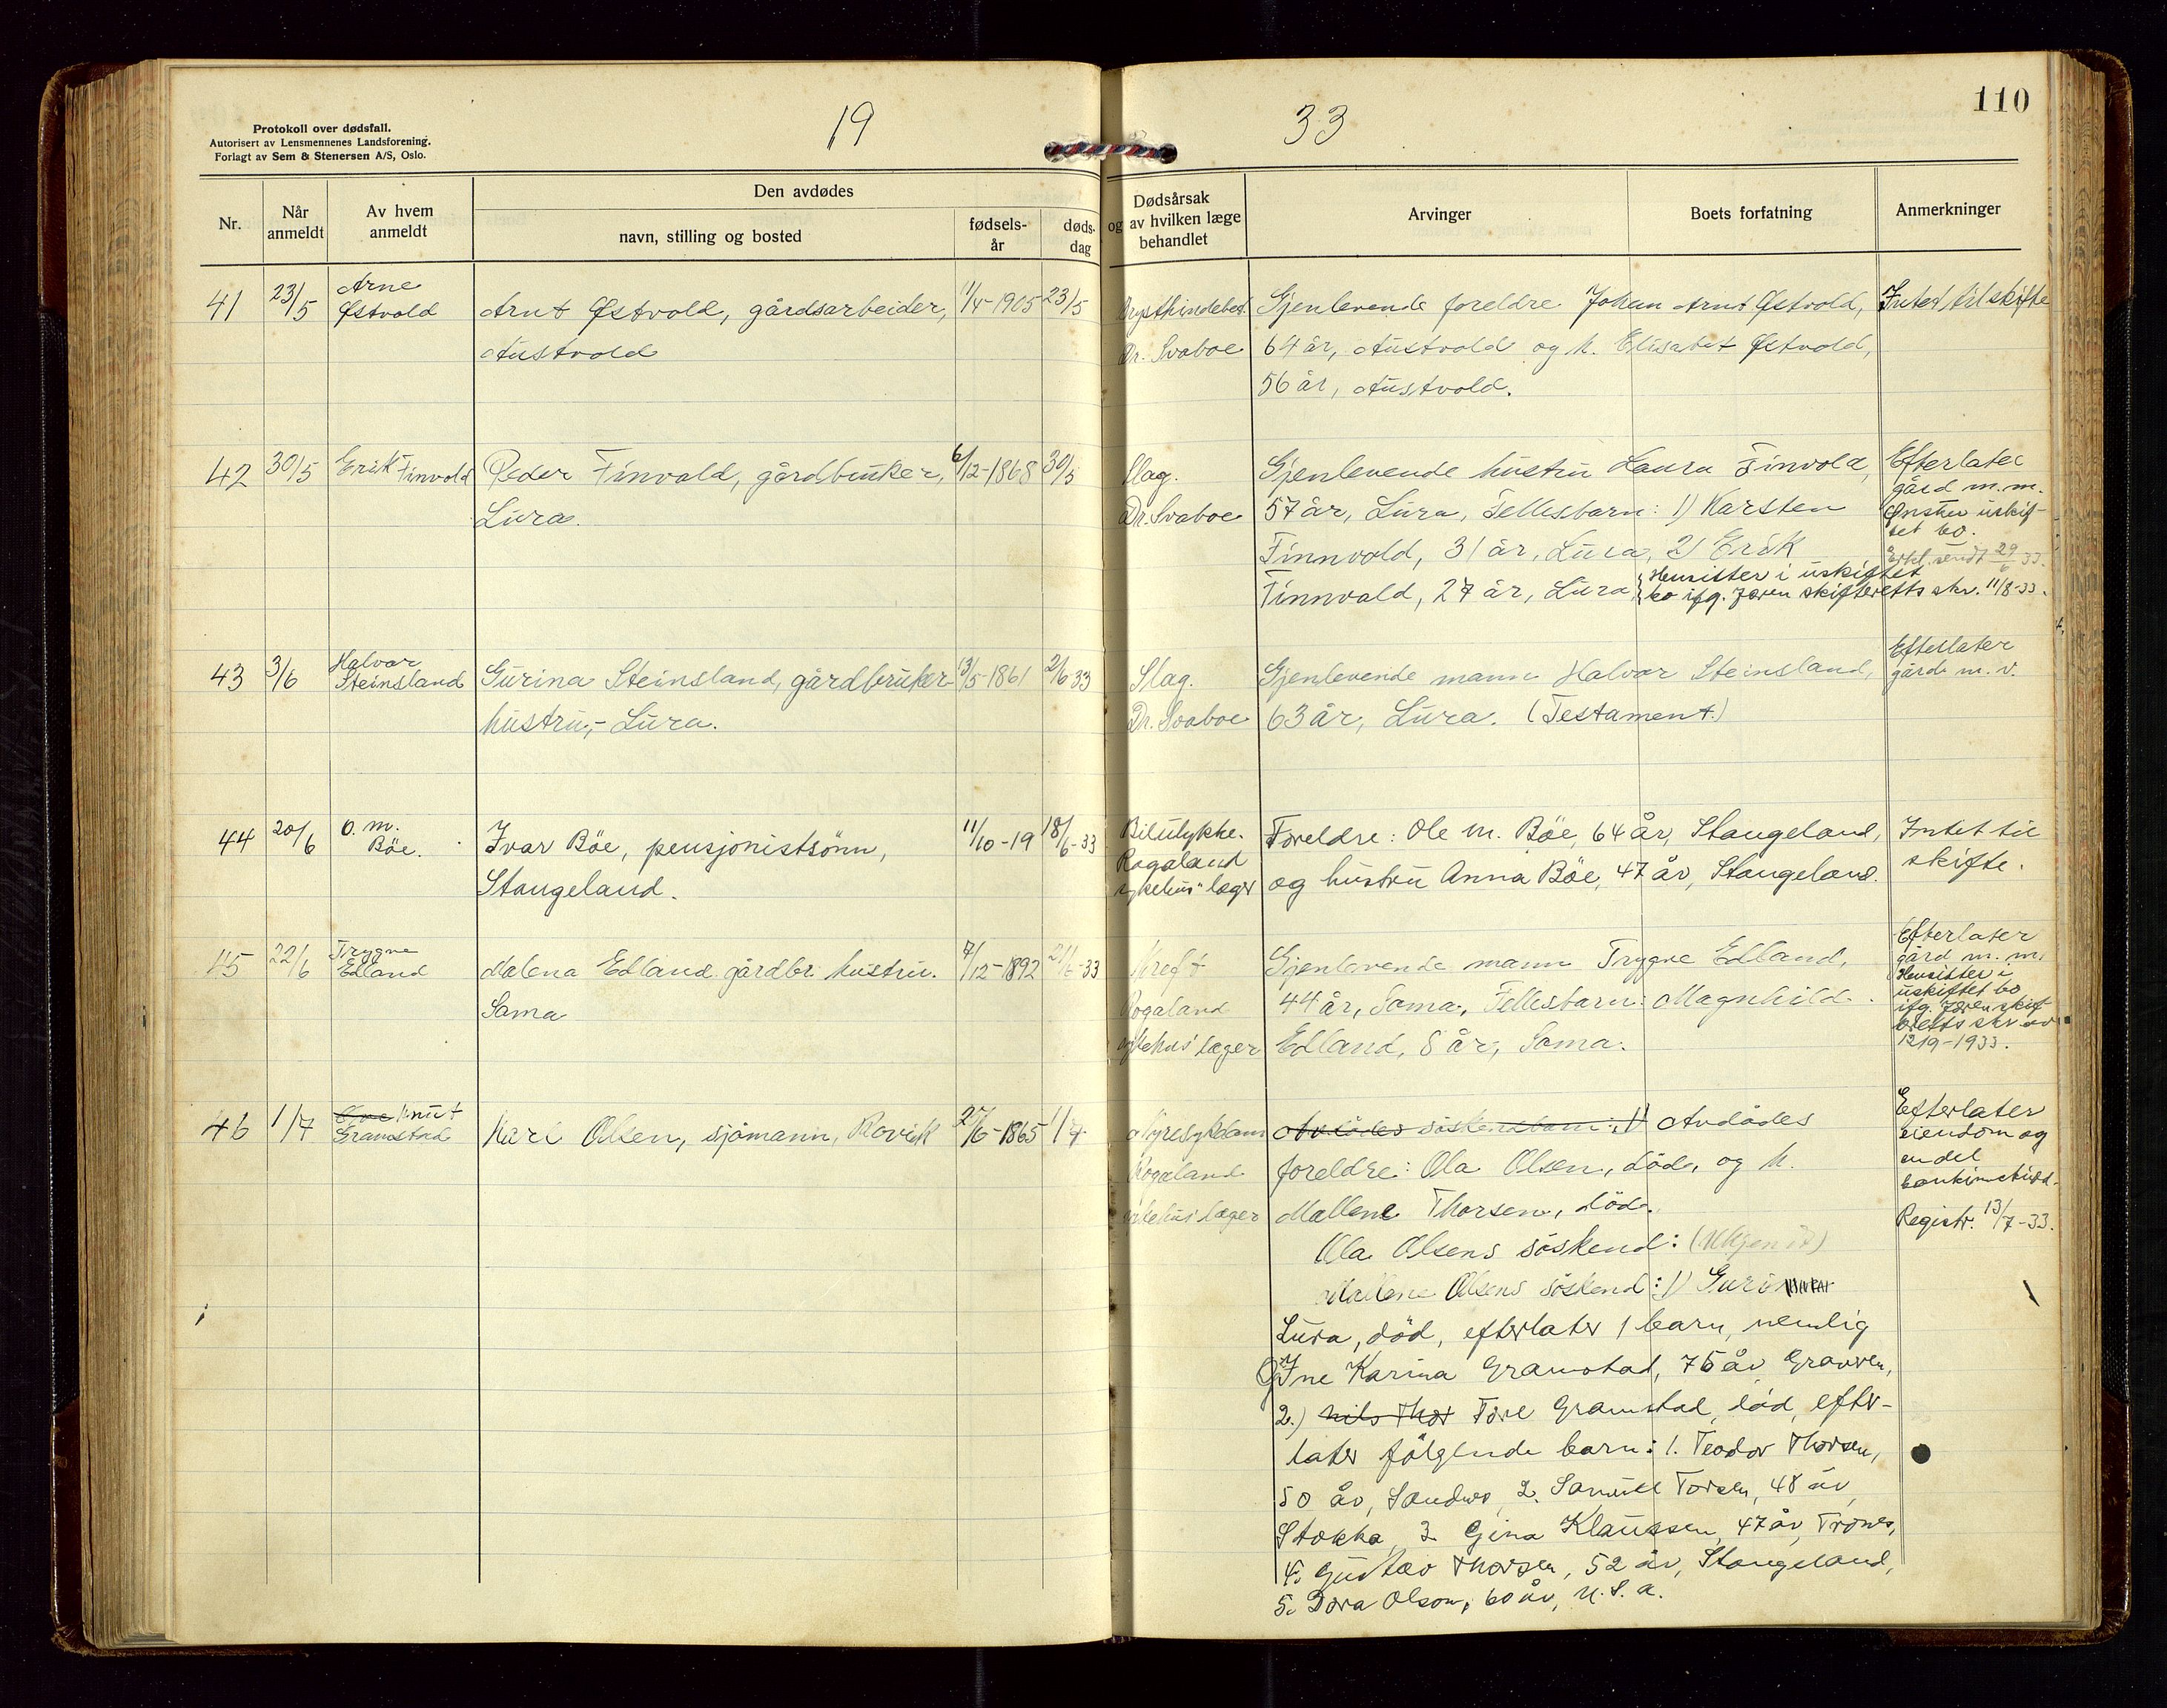 110
19 33
Protokoll over dødsfall.
Autorisert av Lensmennenes Landsforening.
Forlagt av Sem & Stenersen A/S, Oslo.
Nr.
Når anmeldt
Av hvem anmeldt
Den avdødes
navn, stilling og bosted
fødsels-år
døds-dag
Dødsårsak
og av hvilken læge
behandlet
Arvinger
Boets forfatning
Anmerkninger
41 23/5 Arne Østvold
Arnt Østvold, gårdsarbeider,
Austvold
1/4-1905 23/5
Brysthindebet.
Dr. Svaboe
Gjenlevende foreldre Johan Arnt Østvold,
64 år, Austvold og h. Elisabet Østvold,
56 år, Austvold.
Intet til skifte
42 30/5 Erik Finvold
Peder Finvold, gårdbruker,
Lura.
6/12-1868 30/5
Slag.
Dr. Svaboe
Gjenlevende hustru Laura Finvold,
57 år, Lura, Fellesbarn: 1) Karsten
Finnvold, 31 år, Lura, 2) Erik
Finnvold, 27 år, Lura,
Hensitter i uskiftet
bo ifg. Jæren skifteretts skr. 11/8-33.
Efterlater
gård m.m.
Ønsker uskif-
tet bo.
sendt 29/6 33.
43 3/6 Halvar Steinsland
Gurina Steinsland, gårdbruker-
hustru,- Lura.
13/5-1861 2/6 33
Slag.
Dr. Svaboe
Gjenlevende mann Halvar Steinsland,
63 år, Lura. (Testament.)
Efterlater
gård m. v.
44 20/6 O. M. Böe.
Ivar Böe, pensjonistsönn,
Stangeland.
11/10-19 18/6-33
Bilulykke.
Rogaland
sykehus' læger
Foreldre: Ole M. Böe, 64 år, Stangeland,
og hustru Anna Böe, 47 år, Stangeland.
Intet til
skifte.
45 22/6 Trygve Edland
Malena Edland gårdbr. hustru.
Soma
7/12-1892 21/6-33
Kreft
Rogaland
sykehus' læger
Gjenlevende mann Trygve Edland,
44 år, Soma, Fellesbarn: Magnhild
Edland, 8 år, Soma.
Efterlater
gård m. m.
Hensitter i
uskiftet bo
ifg. Jæren skif
teretts skr. av
12/9-1933.
46 1/7 Knut Gramstad
Karl Olsen, sjömann, Rovik
27/6-1865 1/7
Nyresykdom
Rogaland
sykehus' læger
Avdødes söskenbarn: 1) Avdödes
foreldre: Ola Olsen, död, og h.
Mallene Thorsen, död.
Ola Olsens söskend: (Ukjendt)
Mallene Olsens söskend: 1) Guri
Lura, död, efterlater 1 barn, nemlig
Ine Karina Gramstad, 75 år, Gravren,
2.) Nils Thor Tore Gramstad, död, efter-
later fölgende barn: 1. Teodor Thorsen,
50 år, Sandnes, 2. Samuel Torsen, 48 år,
Stokka, 3. Gina Klaussen, 47 år, Trones,
4. Gustav Thorsen, 52 år, Stangeland,
5. Dora Olson, 60 år, U. S. A.
Efterlater
eiendom og
en del
bankinnskudd.
Registr. 13/7-33.